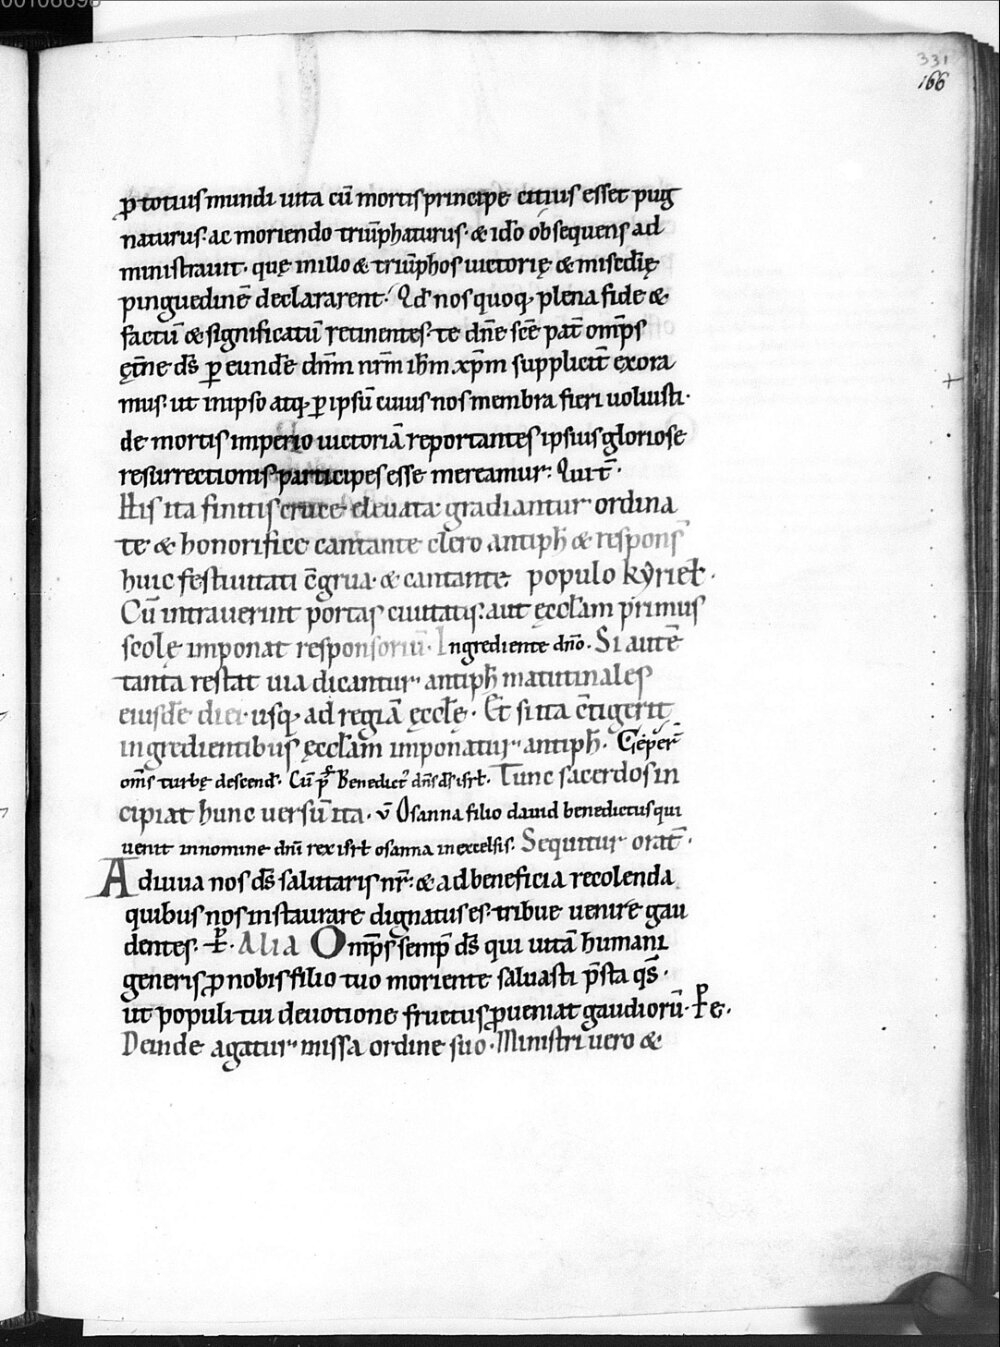 00106698
331
166
ꝓ totius mundi uita cū mortis principe citius esset pug
naturus· ac moriendo triūphaturus· & idō obsequens ad
ministrauit· quę in illo & triūphos uictorię & misc̄dię
pinguedinē declararent· Qd̄ nos quoq; plena fide &
factū & significatū retinentes· te dn̄e sc̄e pat̄ omp̄s
ęt̄ne ds̄ ꝑ eundē dn̄m nr̄m ihm̄ xp̄m supplicit̄ exora
mus· ut in ipso atq; ꝑ ipsū cuius nos membra fieri uoluisti·
de mortis imperio uictoriā reportantes ipsius gloriose
resurrectionis participes esse mereamur· Qui t̄·
His ita finitis cruce eleuata gradiantur ordina
te & honorifice cantante clero antiph̄ & respons̄
huic festiuitati c̄grua· & cantante populo kyriel̄·
Cū intrauerint portas ciuitatis· aut ęccl̄am primus
scolę imponat responsoriū· Ingrediente dn̄o· Si autē
tanta restat uia dicantur antiph̄ matutinales
eiusdē diei usq; ad regiā ęccl̄ę· Et si ita c̄tigerit
ingredientibus ęccl̄am imponatur antiph̄· Cęper̄
om̄s turbę descend· Cū ꝓ Benedict᷒ dn̄s ds̄ isrl̄· Tunc sacerdos in
cipiat hunc uersū ita· v̄ Osanna filio dauid benedictus qui
uenit in nomine dn̄i rex isrl̄ osanna in excelsis· Sequitur orat̄·
Adiuua nos ds̄ salutaris nr̄· & ad beneficia recolenda
quibus nos instaurare dignatus es· tribue uenire gau
dentes· ꝑ· Alia Omp̄s semp̄ ds̄ qui uitā humani
generis ꝓ nobis filio tuo moriente saluasti p̄sta qs̄·
ut populi tui deuotione fructus ꝓueniat gaudiorū· ꝑ e·
Deinde agatur missa ordine suo· Ministri uero &